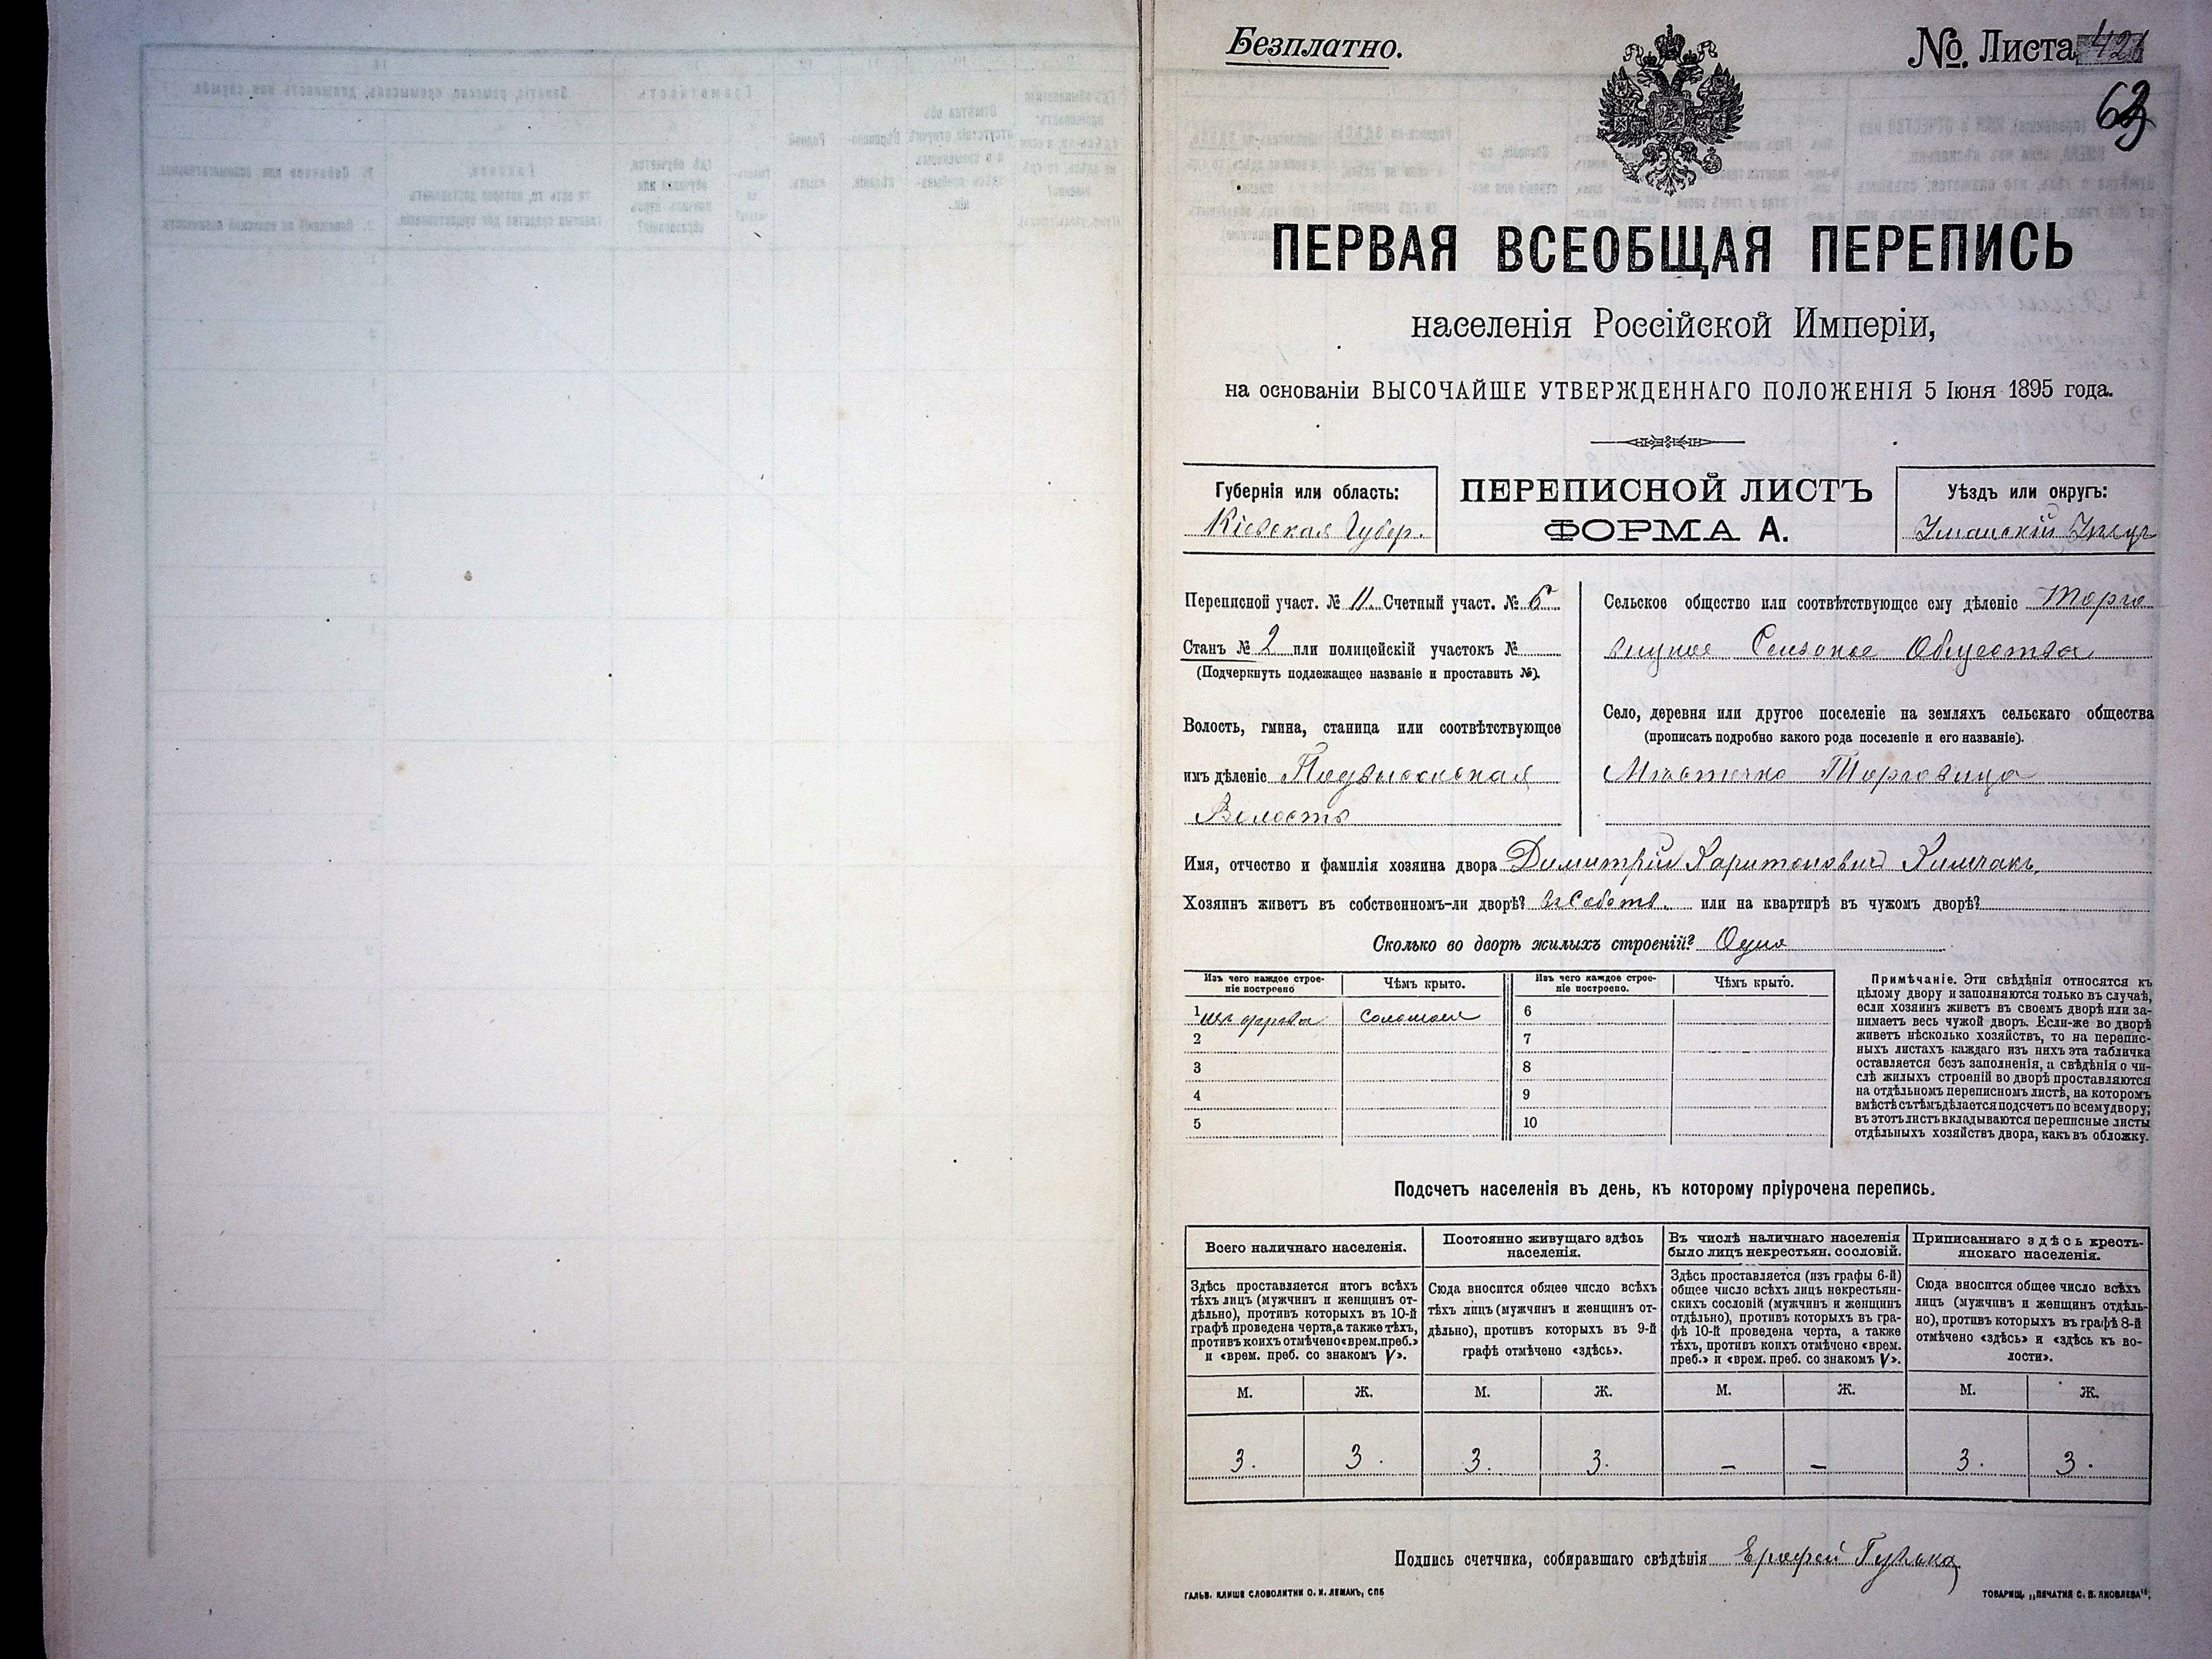 Безплатно.
№ Листа 426
63
ПЕРВАЯ ВСЕОБЩАЯ ПЕРЕПИСЬ
населенія Россійской Имперіи,
на основаніи ВЫСОЧАЙШЕ УТВЕРЖДЕННАГО ПОЛОЖЕНІЯ 5 Іюня 1895 года.
Губернія или область:
Кіевская Губер.
ПЕРЕПИСНОЙ ЛИСТЪ
ФОРМА А.
Уѣздъ или округъ:
Уманскій Уѣздъ
Переписной участ. № 11. Счетный участ. № 6
Станъ № 2 или полицейскій участокъ №
(Подчеркнуть подлежащее названіе и проставить №).
Волость, гмина, станица или соотвѣтствующее
имъ дѣленіе Подвысокская
Волость
Сельское общество или соотвѣтствующее ему дѣленіе Торго
вицкое Сельское Общество
Село, деревня или другое поселеніе на земляхъ сельскаго общества
(прописать подробно какого рода поселеніе и его названіе).
Мѣстечко Торговица
Имя, отчество и фамилія хозяина двора Димитрій Харитоновичъ Кимчакъ
Хозяинъ живетъ въ собственномъ-ли дворѣ? въ Собств. или на квартирѣ въ чужомъ дворѣ?
Сколько во дворѣ жилыхъ строеній? Одно
Изъ чего каждое строе-
ніе построено
Чѣмъ крыто.
Изъ чего каждое строе-
ніе построено.
Чѣмъ крыто.
1 изъ дерева соломой 6
2 7
3 8
4 9
5 10
Примѣчаніе. Эти свѣдѣнія относятся къ
цѣлому двору и заполняются только въ случаѣ,
если хозяинъ живетъ въ своемъ дворѣ или за-
нимаетъ весь чужой дворъ. Если-же во дворѣ
живетъ нѣсколько хозяйствъ, то на перепис-
ныхъ листахъ каждаго изъ нихъ эта табличка
оставляется безъ заполненія, а свѣдѣнія о чи-
слѣ жилыхъ строеній во дворѣ проставляются
на отдѣльномъ переписномъ листѣ, на которомъ
вмѣстѣ съ тѣмъ дѣлается подсчетъ по всему двору;
въ этотъ листъ вкладываются переписные листы
отдѣльныхъ хозяйствъ двора, какъ въ обложку.
Подсчетъ населенія въ день, къ которому пріурочена перепись.
Всего наличнаго населенія.
Здѣсь проставляется итогъ всѣхъ
тѣхъ лицъ (мужчинъ и женщинъ от-
дѣльно), противъ которыхъ въ 10-й
графѣ проведена черта, а также тѣхъ,
противъ коихъ отмѣчено «врем. преб.»
и «врем. преб. со знакомъ V».
Постоянно живущаго здѣсь
населенія.
Сюда вносится общее число всѣхъ
тѣхъ лицъ (мужчинъ и женщинъ от-
дѣльно), противъ которыхъ въ 9-й
графѣ отмѣчено «здѣсь».
Въ числѣ наличнаго населенія
было лицъ некрестьян. сословій.
Здѣсь проставляется (изъ графы 6-й)
общее число всѣхъ лицъ некрестьян-
скихъ сословій (мужчинъ и женщинъ
отдѣльно), противъ которыхъ въ гра-
фѣ 10-й проведена черта, а также
тѣхъ, противъ коихъ отмѣчено «врем.
преб.» и «врем. преб. со знакомъ V».
Приписаннаго здѣсь кресть-
янскаго населенія.
Сюда вносится общее число всѣхъ
лицъ (мужчинъ и женщинъ отдѣль-
но), противъ которыхъ въ графѣ 8-й
отмѣчено «здѣсь» и «здѣсь къ во-
лости».
М. Ж. М. Ж. М. Ж. М. Ж.
3. 3. 3. 3. – – 3. 3.
Подпись счетчика, собиравшаго свѣдѣнія Ерофей
ГАЛЬВ. КЛИШЕ СЛОВОЛИТНИ О. И. ЛЕМАНЪ, СПБ
ТОВАРИЩ. „ПЕЧАТНЯ С. П. ЯКОВЛЕВА“.